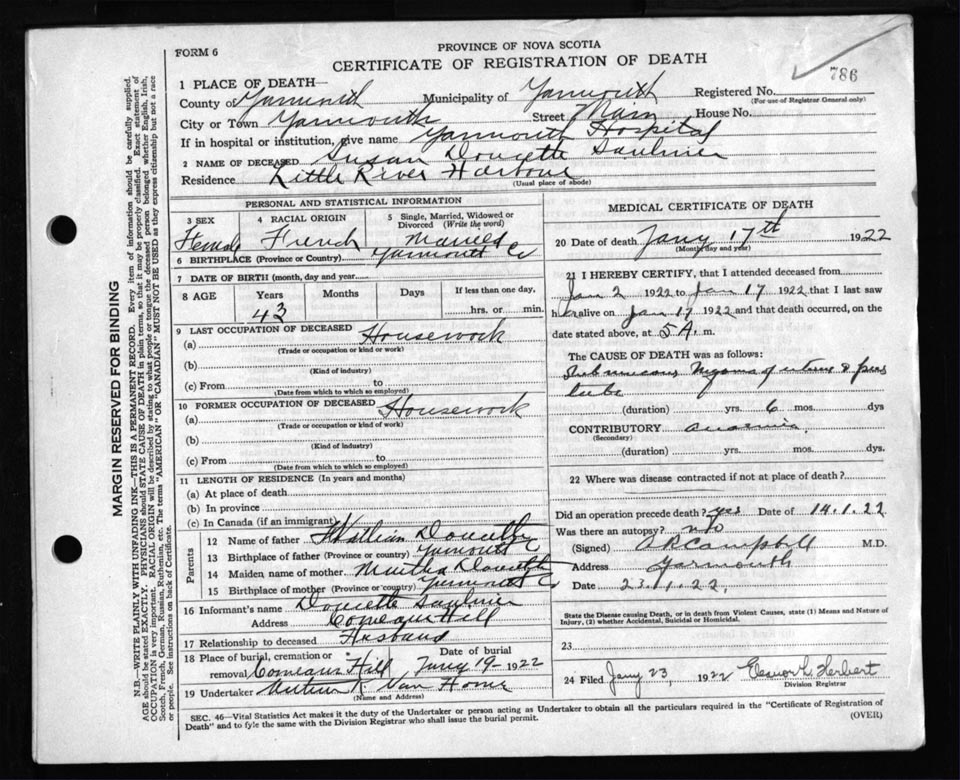 FORM 6
PROVINCE OF NOVA SCOTIA
CERTIFICATE OF REGISTRATION OF DEATH
786
1 PLACE OF DEATH—
County of Yarmouth Municipality of Yarmouth Registered No.
(For use of Registrar General only)
City or Town Yarmouth Street Main House No.
If in hospital or institution, give name Yarmouth Hospital
2 NAME OF DECEASED Susan Doucette Saulnier
Residence Little River Harbour
(Usual place of abode)
PERSONAL AND STATISTICAL INFORMATION
3 SEX 4 RACIAL ORIGIN 5 Single, Married, Widowed or Divorced (Write the word)
Female French Married
6 BIRTHPLACE (Province or Country) Yarmouth Co
7 DATE OF BIRTH (month, day and year)
8 AGE Years Months Days If less than one day,
43 hrs. or min.
9 LAST OCCUPATION OF DECEASED
(a) Housework
(Trade or occupation or kind or work)
(b)
(Kind of industry)
(c) From to
(Date from which to which so employed)
10 FORMER OCCUPATION OF DECEASED
(a) Housework
(Trade or occupation or kind of work)
(b)
(Kind of industry)
(c) From to
(Date from which to which so employed)
11 LENGTH OF RESIDENCE (In years and months)
(a) At place of death
(b) In province
(c) In Canada (if an immigrant)
Parents
12 Name of father William Doucette
13 Birthplace of father (Province or country) Yarmouth Co
14 Maiden name of mother Martha Doucette
15 Birthplace of mother (Province or country) Yarmouth Co
16 Informant's name Doucette Saulnier
Address Comeaus Hill
17 Relationship to deceased Husband
18 Place of burial, cremation or removal Comeaus Hill Date of burial Jany 19 - 1922
19 Undertaker K. Van Horne
(Name and Address)
MEDICAL CERTIFICATE OF DEATH
20 Date of death Jany 17th 1922
(Month day and year)
21 I HEREBY CERTIFY, that I attended deceased from
Jan 2 1922 to Jan 17 1922 that I last saw
her alive on Jan 17 1922 and that death occurred, on the
date stated above, at 5 A. m.
The CAUSE OF DEATH was as follows:
Submucous Myoma of uterus & pus
tube
(duration) yrs. 6 mos. dys
CONTRIBUTORY anaemia
(Secondary)
(duration) yrs. mos. dys.
22 Where was disease contracted if not at place of death?
Did an operation precede death? yes Date of 14.1.22
Was there an autopsy? no
(Signed) Campbell M.D.
Address Yarmouth
Date 23.1.22
State the Disease causing Death, or in death from Violent Causes, state (1) Means and Nature of
Injury, (2) whether Accidental, Suicidal or Homicidal.
23
24 Filed Jany 23, 1922 Herbert
Division Registrar
SEC. 46—Vital Statistics Act makes it the duty of the Undertaker or person acting as Undertaker to obtain all the particulars required in the "Certificate of Registration of
Death" and to fyle the same with the Division Registrar who shall issue the burial permit.
(OVER)
MARGIN RESERVED FOR BINDING
N.B.—WRITE PLAINLY WITH UNFADING INK—THIS IS A PERMANENT RECORD. Every item of information should be carefully supplied.
AGE should be stated EXACTLY. PHYSICIANS should STATE CAUSE OF DEATH in plain terms, so that it may be properly classified. Exact statement of
OCCUPATION is very important. RACIAL ORIGIN will be described by stating to what people or tongue the deceased person belonged whether English, Irish,
Scotch, French, German, Russian, Ruthenian, etc. The terms "AMERICAN" OR "CANADIAN" MUST NOT BE USED as they express citizenship but not a race
or people. See instructions on back of Certificate.